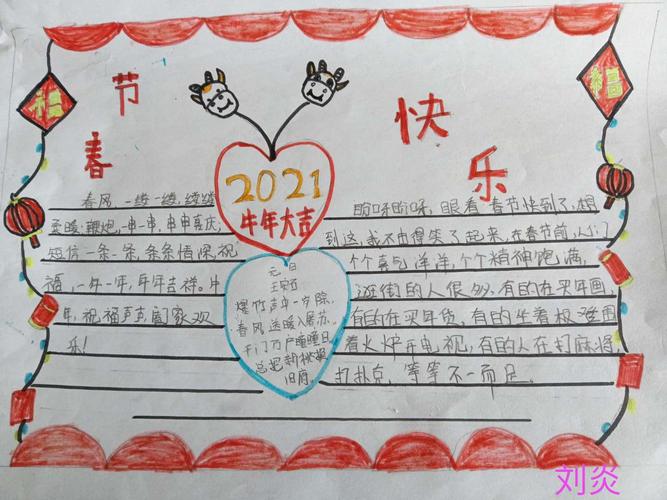 春节
快乐
福
福
2021
牛年大吉
春风,一缕一缕,缕缕
柔暖,鞭炮,一串一串,串串喜庆;
短信一条一条,条条情深,祝
福,一年一年,年年吉祥。牛
年,祝福声声,阖家欢
乐!
元日
王安石
爆竹声中一岁除,
春风送暖入屠苏。
千门万户曈曈日,
总把新桃换
旧符。
盼呀盼呀,眼看春节快到了,想
到这,我不由得笑了起来,在春节前,人们
个个喜气洋洋,个个精神饱满,
逛街的人很多,有的在买年画,
有的在买年货,有的坐着
着火炉看电视,有的人在打麻将,
打扑克,等等不一而足。
刘炎